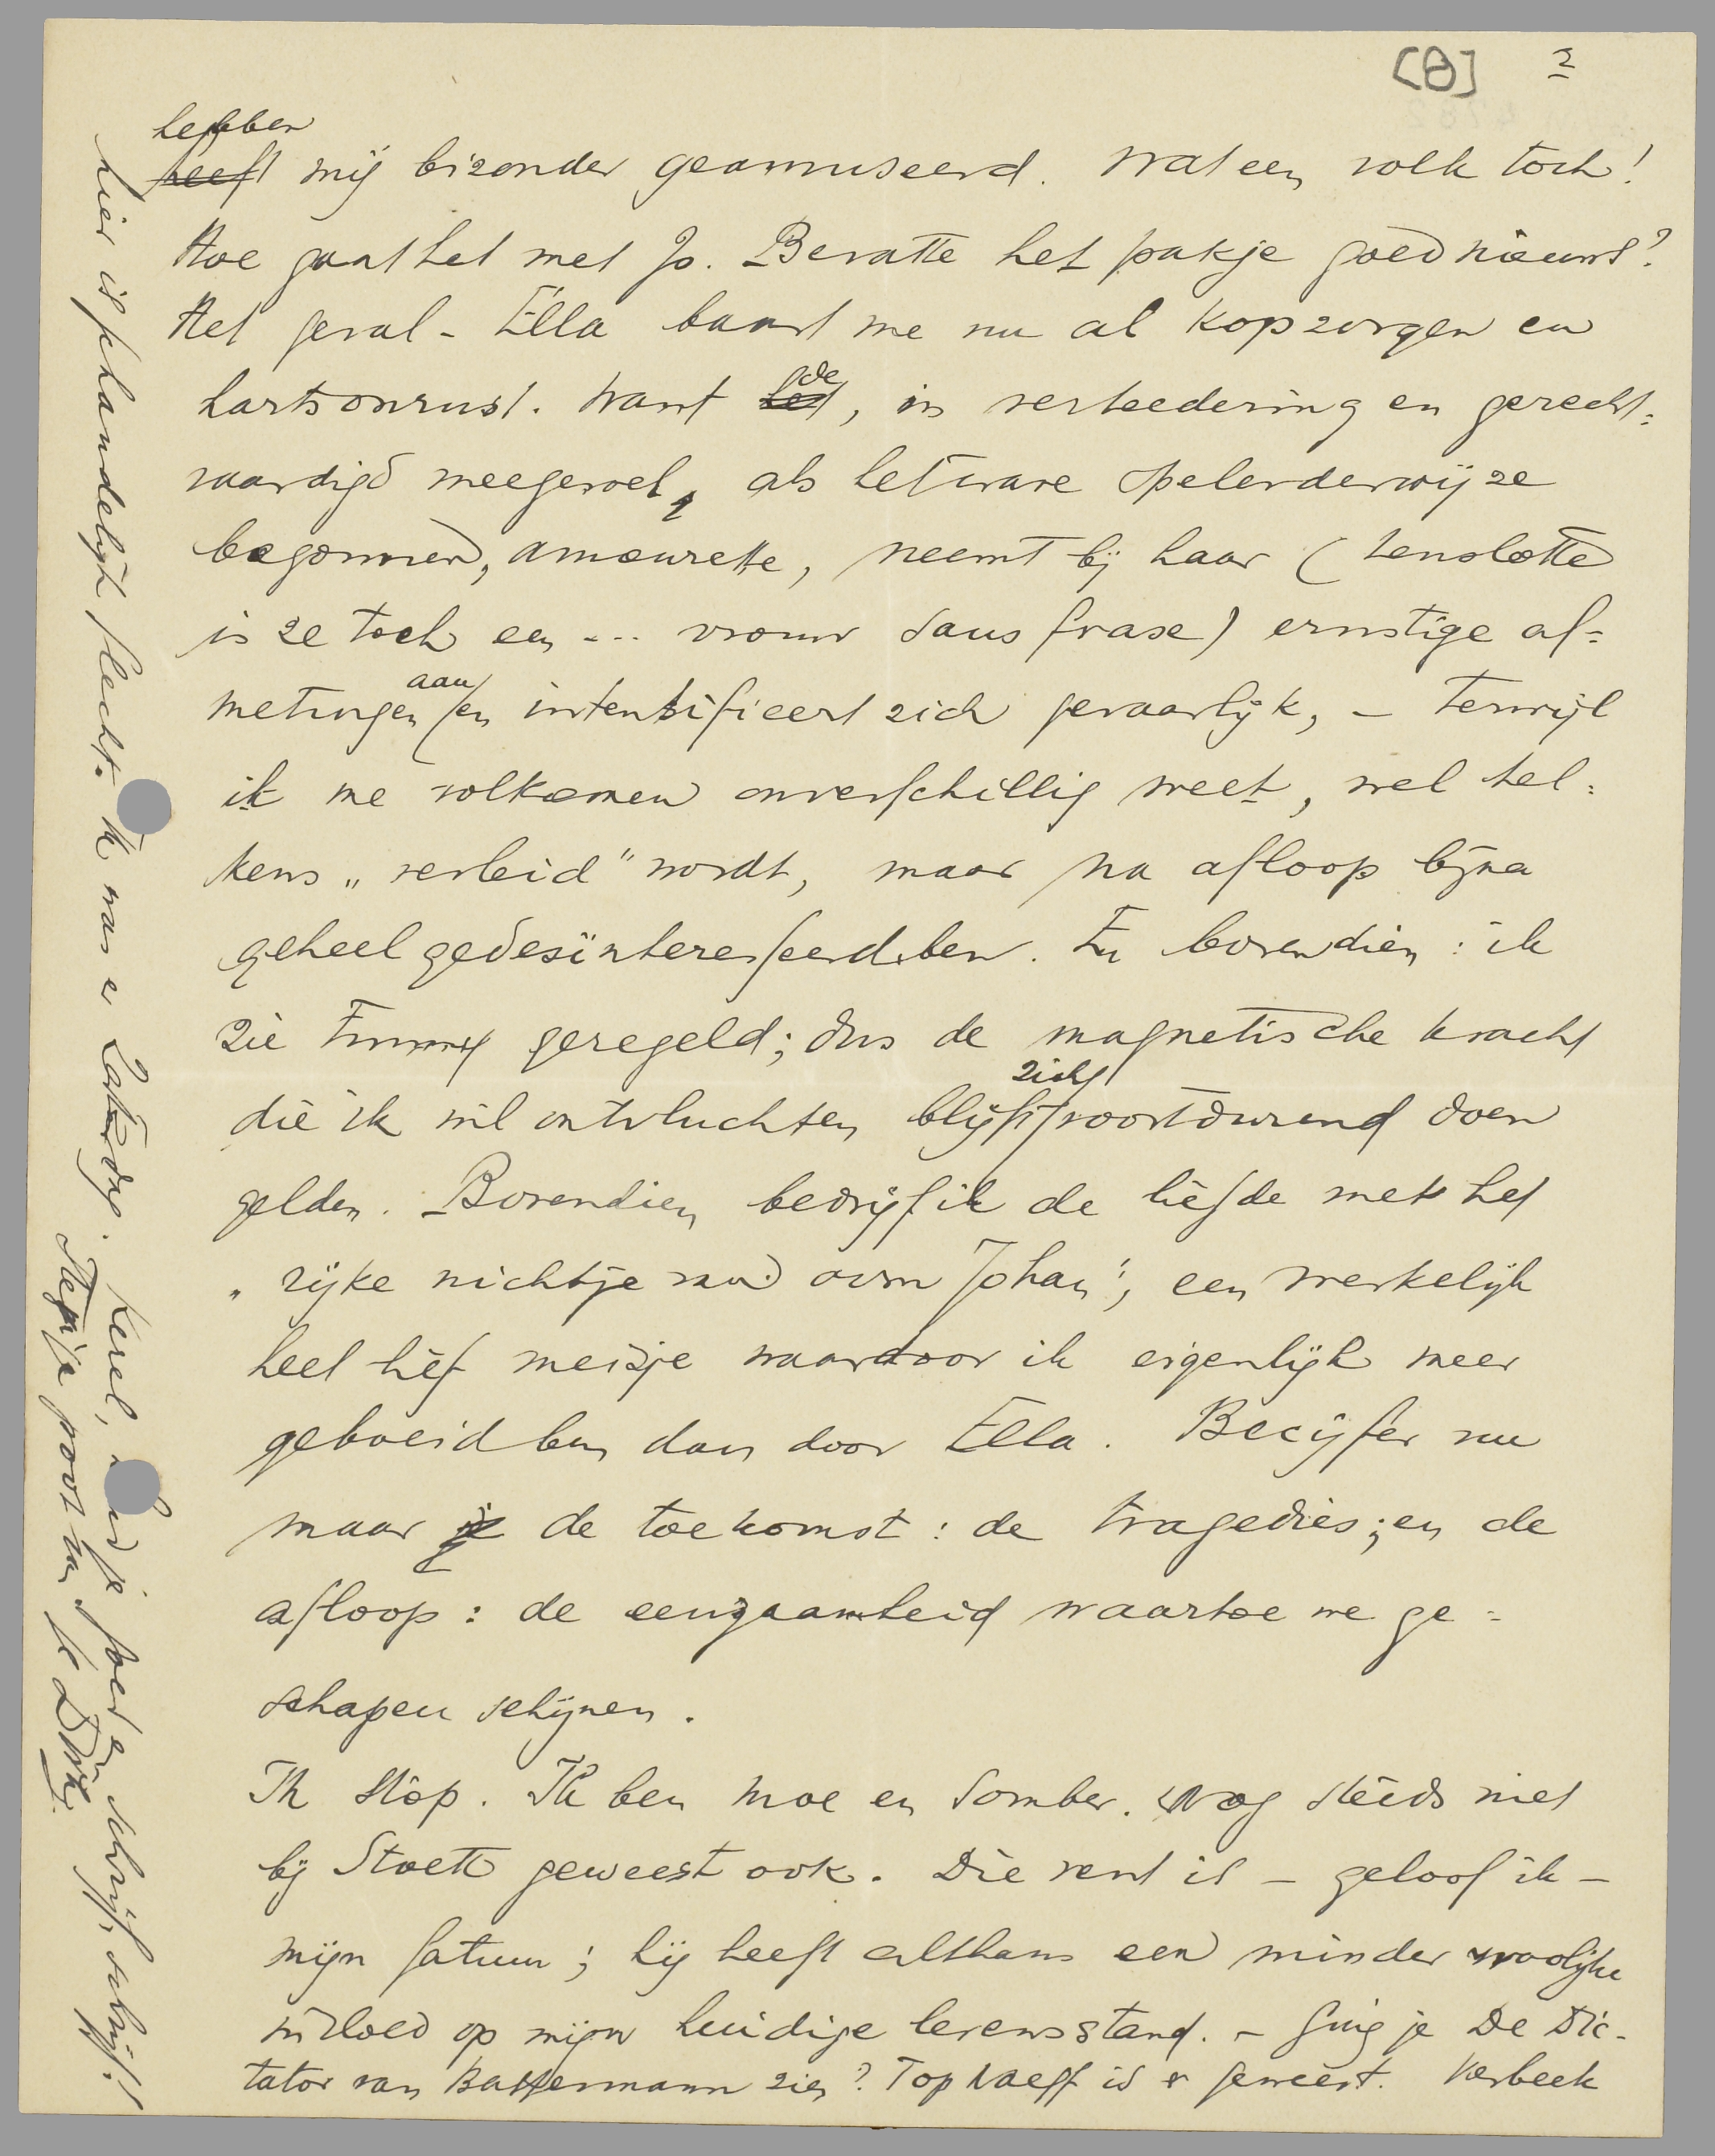 [8] 2
hebben
heeft mij bizonder geamuseerd. Wat een volk toch!
Hoe gaat het met Jo. Bevatte het pakje goed nieuws?
Het geval-Ella baart me nu al kopzorgen en
hartsonrust. Want het de, in verteedering en gerecht=
vaardigd meegevoel, als het ware spelenderwijze
begonnen, amourette, neemt bij haar (tenslotte
is ze toch een ... vrouw sans frase) ernstige af=
metingen aan en intensifieert zich gevaarlijk, – terwijl
ik me volkomen onverschillig weet, wel tel=
kens „verleid" wordt, maar na afloop bijna
geheel gedesïnteresseerd ben. En bovendien: ik
zie Emmy geregeld; dus de magnetische kracht
die ik wil ontvluchten blijft zich voortdurend doen
gelden. Bovendien bedrijf ik de liefde met het
„rijke nichtje van oom Johan", een werkelijk
heel lief meisje waardoor ik eigenlijk meer
geboeid ben dan door Ella. Becijfer nu
maar de toekomst: de tragedies; en de
afloop: de eenzaamheid waartoe we ge=
schapen schijnen.
Ik stop. Ik ben moe en somber. Nog steeds niet
bij Stoett geweest ook. Die vent is – geloof ik –
mijn fatum; hij heeft althans een minder vroolijke
invloed op mijn huidige levensstand. – Ging je De Dic-
tator van Bassermann zien? Top Naeff is er geweest. Verbeek
hier is schandelijk slecht. Ik was e Zaterdag. Kerel, je goed en schrijf, schrijf!
Steeds je poot van je Dirk.